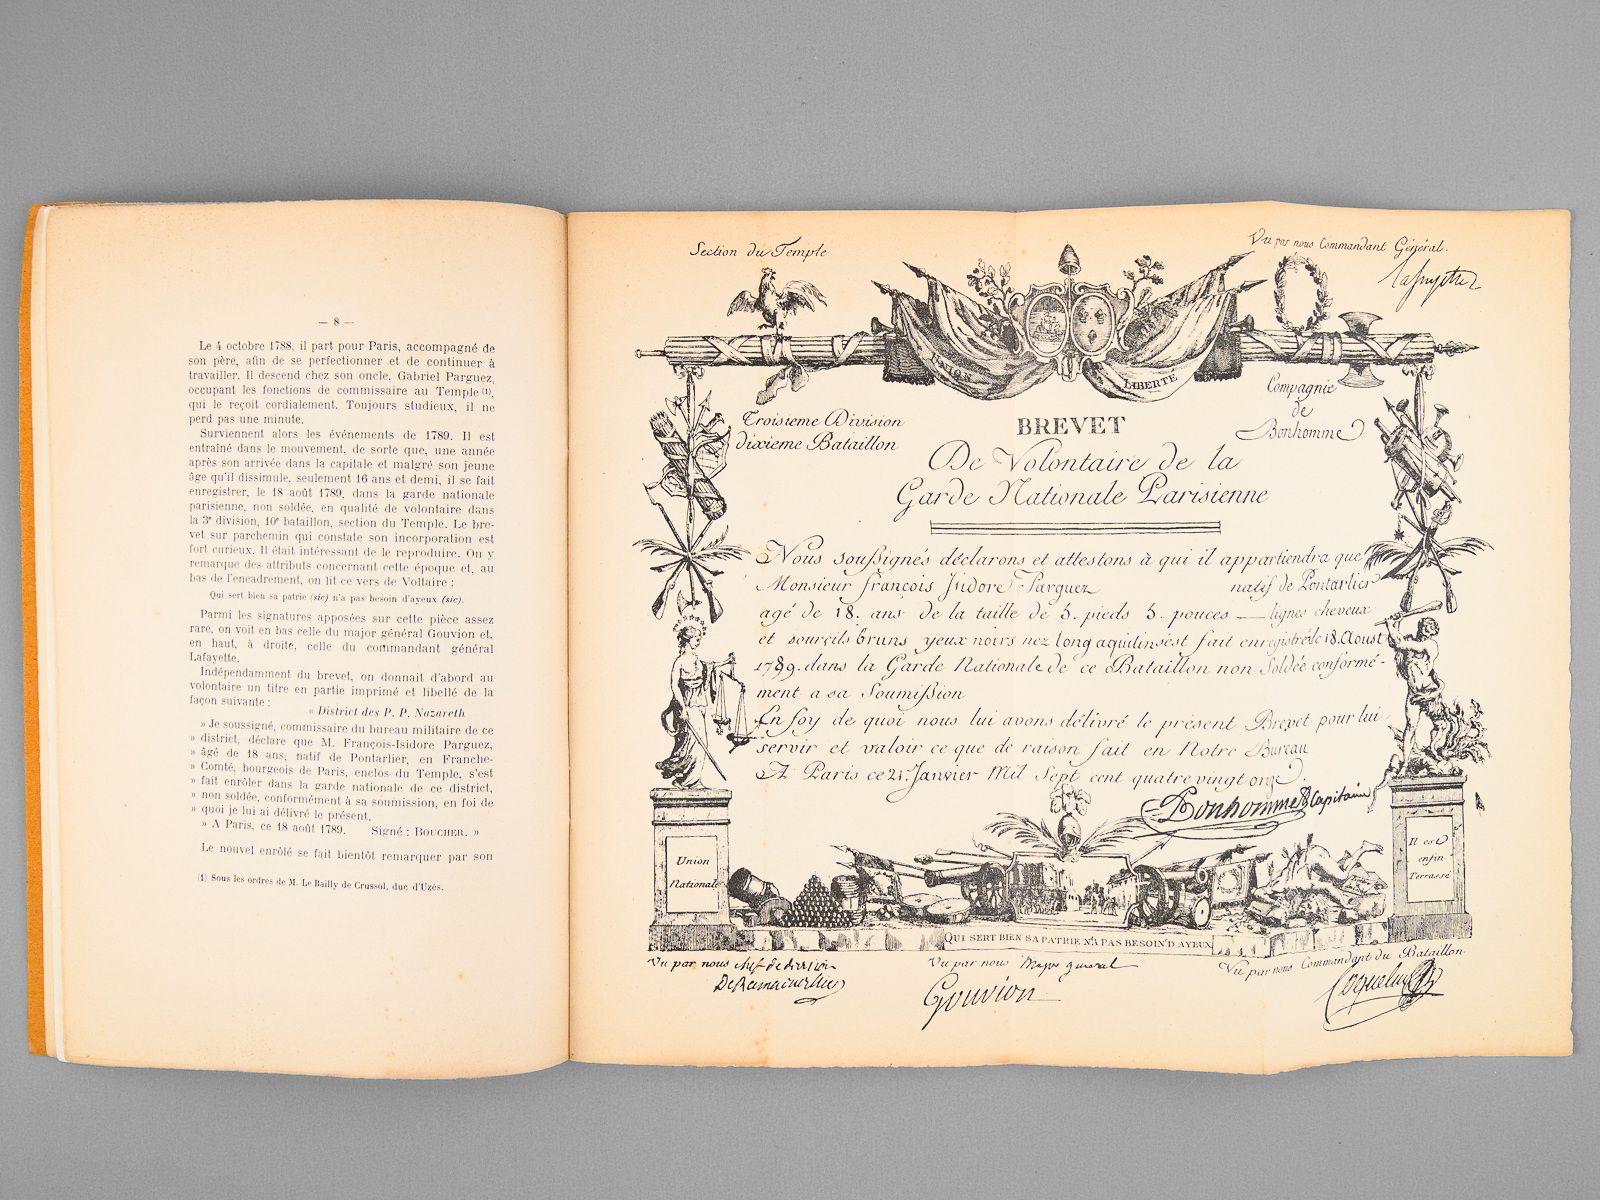 — 8 —
Le 4 octobre 1788, il part pour Paris, accompagné de
son père, afin de se perfectionner et de continuer à
travailler. Il descend chez son oncle, Gabriel Parguez,
occupant les fonctions de commissaire au Temple (1),
qui le reçoit cordialement. Toujours studieux, il ne
perd pas une minute.
Surviennent alors les événements de 1789. Il est
entraîné dans le mouvement, de sorte que, une année
après son arrivée dans la capitale et malgré son jeune
âge qu'il dissimule, seulement 16 ans et demi, il se fait
enregistrer, le 18 août 1789, dans la garde nationale
parisienne, non soldée, en qualité de volontaire dans
la 3e division, 10e bataillon, section du Temple. Le bre-
vet sur parchemin qui constate son incorporation est
fort curieux. Il était intéressant de le reproduire. On y
remarque des attributs concernant cette époque et, au
bas de l'encadrement, on lit ce vers de Voltaire :
Qui sert bien sa patrie (sic) n'a pas besoin d'ayeux (sic).
Parmi les signatures apposées sur cette pièce assez
rare, on voit en bas celle du major général Gouvion et,
en haut, à droite, celle du commandant général
Lafayette.
Indépendamment du brevet, on donnait d'abord au
volontaire un titre en partie imprimé et libellé de la
façon suivante :
« District des P. P. Nazareth
» Je soussigné, commissaire du bureau militaire de ce
» district, déclare que M. François-Isidore Parguez,
» âgé de 18 ans, natif de Pontarlier, en Franche-
» Comté, bourgeois de Paris, enclos du Temple, s'est
» fait enrôler dans la garde nationale de ce district,
» non soldée, conformément à sa soumission, en foi de
» quoi je lui ai délivré le présent.
» A Paris, ce 18 août 1789. Signé : BOUCHER. »
Le nouvel enrôlé se fait bientôt remarquer par son
(1) Sous les ordres de M. Le Bailly de Crussol, duc d'Uzès.
Section du Temple
Vu par nous Commandant Général.
Lafayette
UNION
LIBERTÉ
Troisieme Division
dixieme Bataillon
Compagnie
de
Bonhomme
BREVET
De Volontaire de la
Garde Nationale Parisienne
Nous soussignés déclarons et attestons à qui il appartiendra que
Monsieur françois Isidore Parguez natif de Pontarlier
agé de 18. ans de la taille de 5. pieds 3. pouces — lignes cheveux
et sourcils bruns yeux noirs nez long aquilin s'est fait enregistré le 18. Aoust
1789. dans la Garde Nationale de ce Bataillon non Soldée conformé-
ment a sa Soumission
En foy de quoi nous lui avons délivré le présent Brevet pour lui
servir et valoir ce que de raison fait en Notre Bureau
A Paris ce 21. Janvier Mil Sept cent quatre vingt onze.
Bonhomme Capitaine
Union
Nationale
Il est
enfin
Terrassé
QUI SERT BIEN SA PATRIE N'A PAS BESOIN D'AYEUX
Vu par nous chef de division
Vu par nous Major general
Gouvion
Vu par nous Commandant du Bataillon.